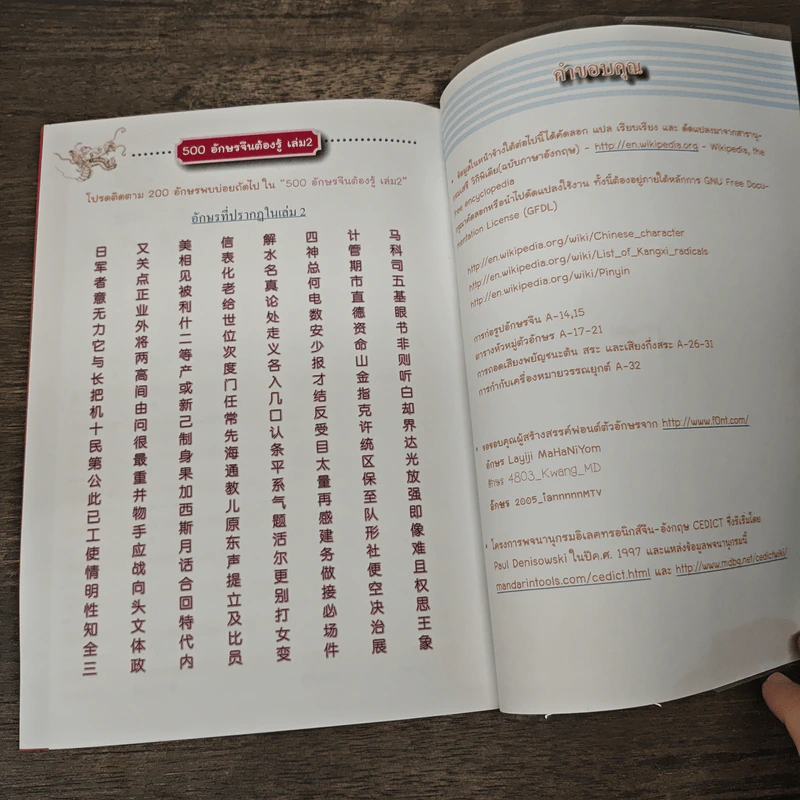 500 อักษรจีนต้องรู้ เล่ม2
โปรดติดตาม 200 อักษรพบบ่อยถัดไป ใน "500 อักษรจีนต้องรู้ เล่ม2"
อักษรที่ปรากฏในเล่ม 2
日军者意无力它与长把机十民第公此已工使情明性知全三
又关点正业外将两高间由问很最重并物手应战向头文体政
美相见被利什二等产或新己制身果加西斯月话合回特代内
信表化老给世位次度门任常先海通教儿原东声提立及比员
解水名真论处走义各入几口认条平系气题活尔更别打女变
四神总何电数安少报才结反受目太量再感建务做接必场件
计管期市直德资命山金指克许统区保至队形社便空决治展
马科司五基眼书非则听白却界达光放强即像难且权思王象
คำขอบคุณ
ข้อมูลในหน้าอ้างใต้ต่อไปนี้ได้คัดลอก แปล เรียบเรียง และ ดัดแปลงมาจากสารานุ-
กรมเสรี วิกิพีเดีย(ฉบับภาษาอังกฤษ) - http://en.wikipedia.org - Wikipedia, the
free encyclopedia
กรุณาคัดลอกหรือนำไปดัดแปลงใช้งาน ทั้งนี้ต้องอยู่ภายใต้หลักการ GNU Free Docu-
mentation License (GFDL)
http://en.wikipedia.org/wiki/Chinese_character
http://en.wikipedia.org/wiki/List_of_Kangxi_radicals
http://en.wikipedia.org/wiki/Pinyin
การก่อรูปอักษรจีน A-14,15
ตารางหัวหมู่ตัวอักษร A-17-21
การถอดเสียงพยัญชนะต้น สระ และเสียงกึ่งสระ A-26-31
การกำกับเครื่องหมายวรรณยุกต์ A-32
• ขอขอบคุณผู้สร้างสรรค์ฟอนต์ตัวอักษรจาก http://www.f0nt.com/
อักษร Layiji MaHaNiYom
อักษร 4803_Kwang_MD
อักษร 2005_iannnnnMTV
• โครงการพจนานุกรมอิเลคทรอนิกส์จีน-อังกฤษ CEDICT ซึ่งริเริ่มโดย
Paul Denisowski ในปีค.ศ. 1997 และแหล่งข้อมูลพจนานุกรมนี้
mandarintools.com/cedict.html และ http://www.mdbg.net/cedictwiki/